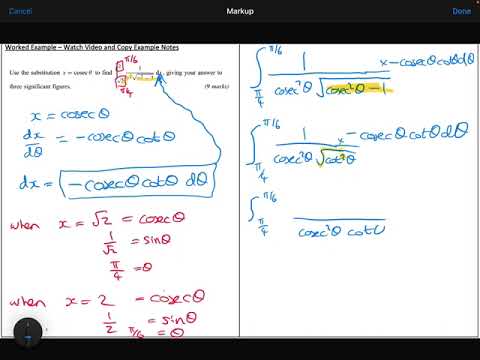 Cancel Markup Done
Worked Example – Watch Video and Copy Example Notes
Use the substitution x = cosec θ to find ∫ 1 / √ dx, giving your answer to
three significant figures. (9 marks)
x = cosecθ
dx/dθ = -cosecθ cotθ
dx = -cosecθ cotθ dθ
when x = √2 = cosecθ
1/√2 = sinθ
π/4 = θ
when x = 2 = cosecθ
1/2 = sinθ
π/6 = θ
∫_{π/4}^{π/6} 1 / (cosec²θ √(cosec²θ - 1)) × -cosecθcotθdθ
∫_{π/4}^{π/6} 1 / (cosec²θ √(cot²θ)) × -cosecθ cotθ dθ
∫_{π/4}^{π/6} / (cosec²θ cot